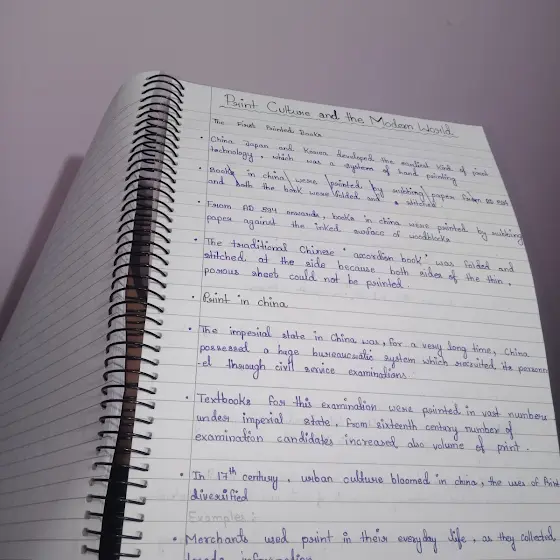 Print Culture and the Modern World
The First Printed Books
• China Japan and Korea developed the earliest kind of print
technology, which was a system of hand printing
• Books in china were printed by rubbing paper from AD 594
and both the book were folded and stitched
• From AD 594 onwards, books in china were printed by rubbing
paper against the inked surface of woodblocks
• The traditional Chinese "accordion book" was folded and
stitched at the side because both sides of the thin,
porous sheet could not be printed.
• Print in china
• The imperial state in China was, for a very long time, China
possessed a huge bureaucratic system which recruited its personn
-el through civil service examinations
• Textbooks for this examination were printed in vast numbers
under imperial state. From sixteenth century number of
examination candidates increased also volume of print.
• In 17th century, urban culture bloomed in china, the uses of Print
diversified
Examples :
• Merchants used print in their everyday life, as they collected
trade information